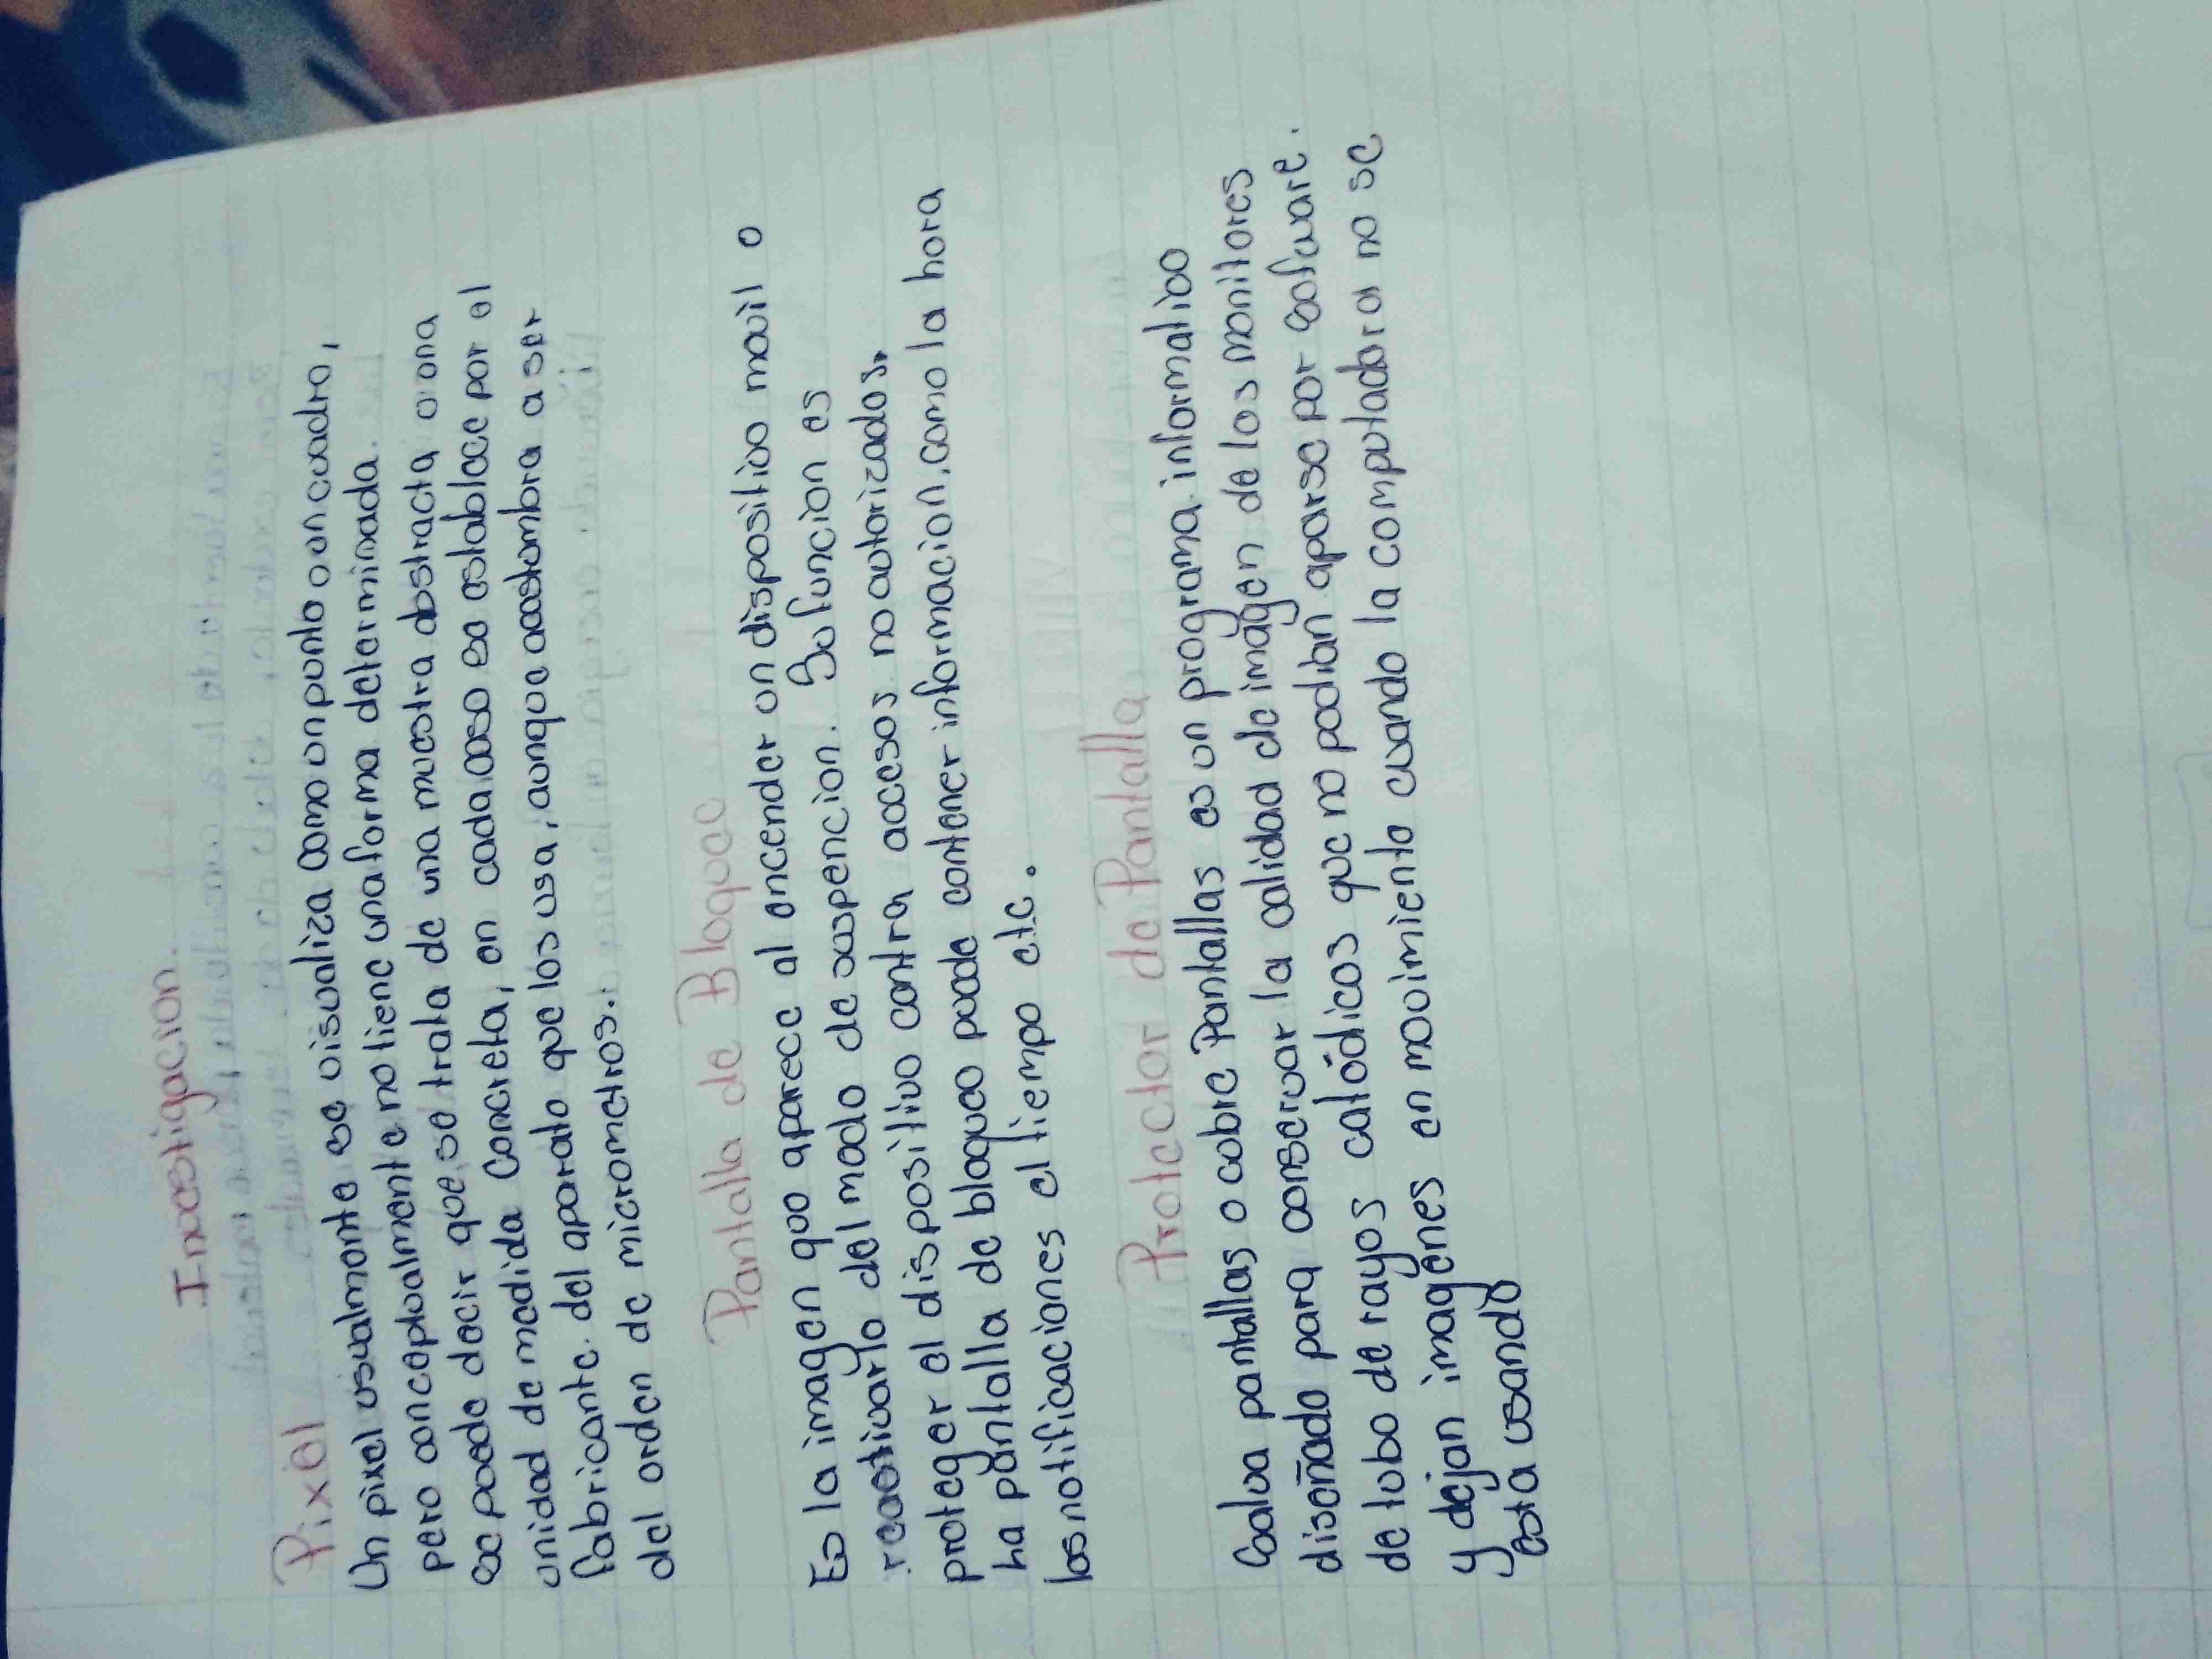 Investigacion.
Pixel
Un pixel usualmente se visualiza como un punto o un cuadro,
pero conceptualmente no tiene una forma determinada.
se puede decir que se trata de una muestra abstracta o una
unidad de medida concreta, en cada caso se establece por el
fabricante del aparato que los usa, aunque acostumbra a ser
del orden de micrometros.
Pantalla de Bloqueo
Es la imagen que aparece al encender un dispositivo movil o
reactivarlo del modo de suspencion. Su funcion es
proteger el dispositivo contra accesos no autorizados.
ha pantalla de bloqueo puede contener informacion, como la hora
las notificaciones el tiempo etc.
Protector de Pantalla
Salva pantallas o cobre Pantallas es un programa informatico
diseñado para conservar la calidad de imagen de los monitores
de tubo de rayos catódicos que no podian aparse por software.
y dejan imagenes en movimiento cuando la computadora no se
esta usando